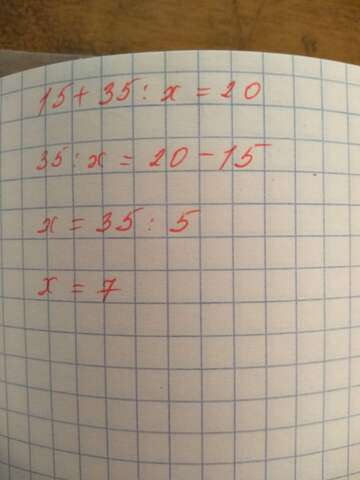 15 + 35 : x = 20
35 : x = 20 - 15
x = 35 : 5
x = 7